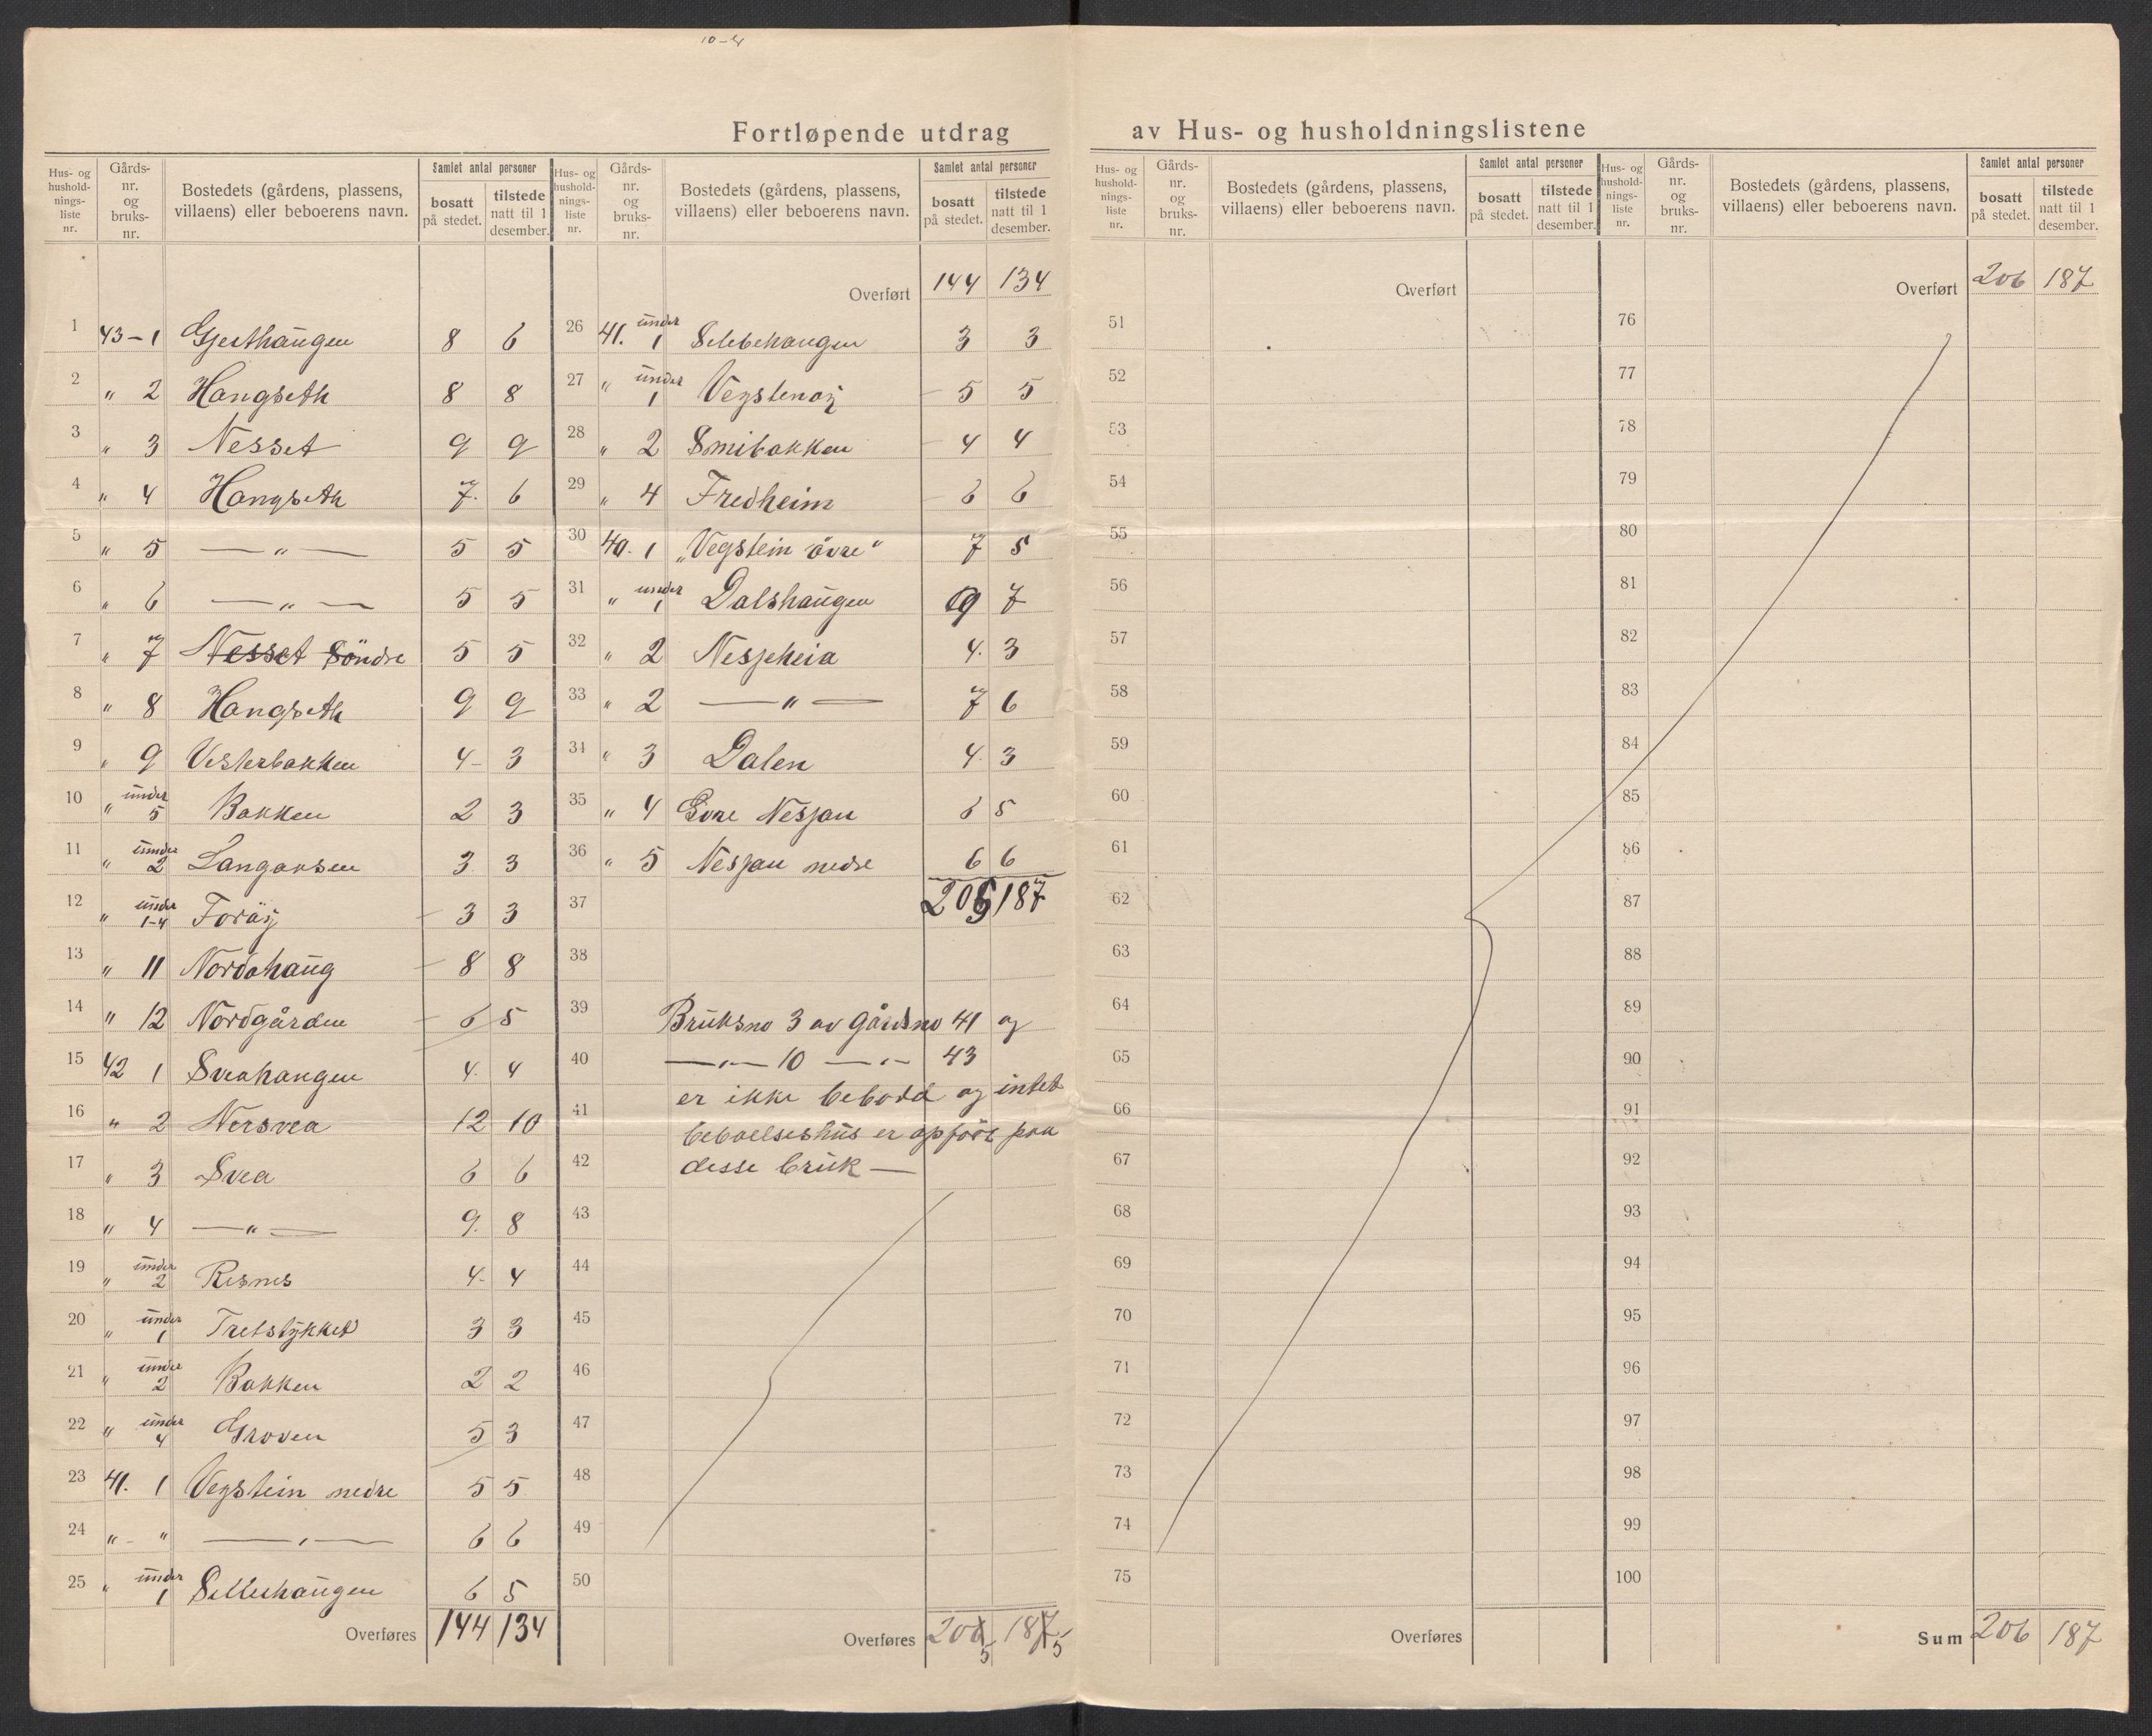 10-4
Fortløpende utdrag av Hus- og husholdningslistene
Hus- og hushold-nings-liste nr. Gårds-nr. og bruks-nr. Bostedets (gårdens, plassens, villaens) eller beboerens navn. Samlet antal personer bosatt på stedet. tilstede natt til 1 desember.
1 43-1 Gjesthaugen 8 6
2 " 2 Haugseth 8 8
3 " 3 Nesset 9 9
4 " 4 Haugseth 7. 6
5 " 5 — " — 5 5
6 " 6 — " — 5 5
7 " 7 Nesset Söndre 5 5
8 " 8 Haugseth 9 9
9 " 9 Vesterbakken 4- 3
10 " under 5 Bakken 2 3
11 " under 2 Langaasen 3 3
12 " under 1-4 3 3
13 " 11 Nordahaug 8 8
14 " 12 Nordgården 6 5
15 42 1 Sveahaugen 4. 4
16 " 2 Nersvea 12 10
17 " 3 Svea 6 6
18 " 4 — " — 9. 8
19 " under 2 Resnes 4- 4
20 " under 1 Tretstykket 3 3
21 " under 2 Bakken 2 2
22 " under 4 Groven 5 3
23 41. 1 Vegstein nedre 5 5
24 " - " — " — 6 6
25 " under 1 6 5
Overføres 144 134
Hus- og hushold-nings-liste nr. Gårds-nr. og bruks-nr. Bostedets (gårdens, plassens, villaens) eller beboerens navn. Samlet antal personer bosatt på stedet. tilstede natt til 1 desember.
Overført 144 134
26 41. under 1 3 3
27 " under 1 5 5
28 " 2 Smibakken 4 4
29 " 4 Fredheim 6 6
30 40. 1 „Vegstein övre" 7 5
31 " under 1 Dalshaugen 9 7
32 " 2 Nesjeheia 4. 3
33 " 2 — " — 7 6
34 " 3 Dalen 4. 3
35 " 4 Nesjan 6 5
36 " 5 Nesjan nedre 6 6
37 206 187
38
39 Bruksno 3 av Gårdsno 41 og
40 — " — 10 — " — 43
er ikke bebodd og intet
41 beboelseshus er opfört paa
42 desse bruk —
43
44
45
46
47
48
49
50
Overføres 205 187 5
Hus- og hushold-nings-liste nr. Gårds-nr. og bruks-nr. Bostedets (gårdens, plassens, villaens) eller beboerens navn. Samlet antal personer bosatt på stedet. tilstede natt til 1 desember.
Overført
51
52
53
54
55
56
57
58
59
60
61
62
63
64
65
66
67
68
69
70
71
72
73
74
75
Overføres
Hus- og hushold-nings-liste nr. Gårds-nr. og bruks-nr. Bostedets (gårdens, plassens, villaens) eller beboerens navn. Samlet antal personer bosatt på stedet. tilstede natt til 1 desember.
Overført 206 187
76
77
78
79
80
81
82
83
84
85
86
87
88
89
90
91
92
93
94
95
96
97
98
99
100
Sum 206 187